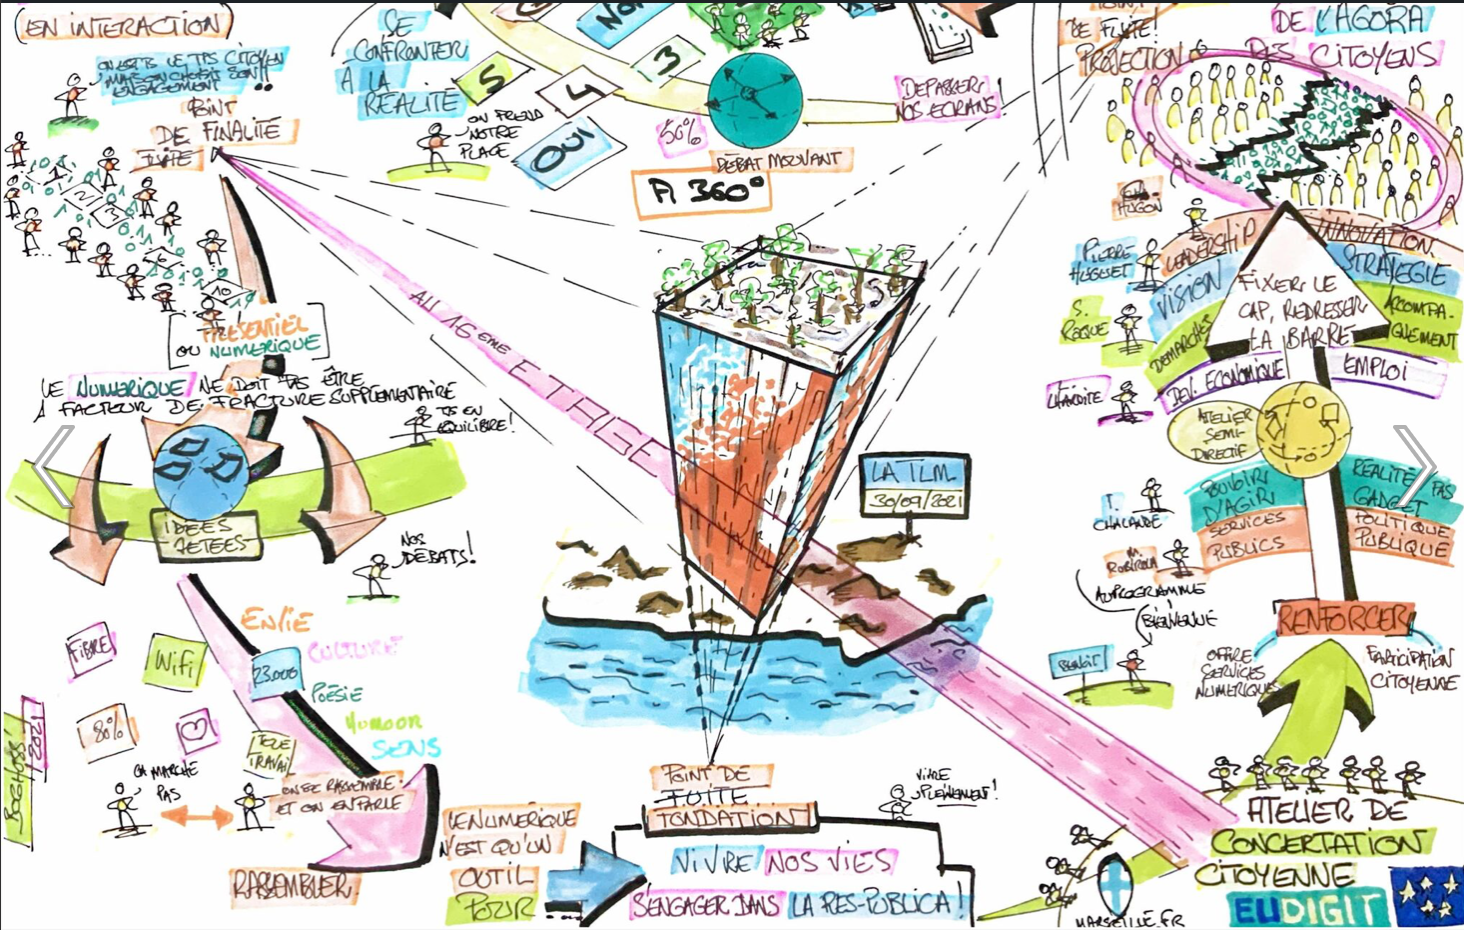 EN INTERACTION
POINT
DE FINALITÉ
FUITE
SE
CONFRONTER
À LA
RÉALITÉ
ON PREND
NOTRE
PLACE
NON
3
4
5
OUI
50%
DÉBAT MOUVANT
À 360°
DÉPASSER
NOS ECRANS!
DE FUITE!
PROJECTION
DE L'AGORA
DES CITOYENS
1
2
3
10
PRÉSENTIEL
OU NUMÉRIQUE
LE NUMÉRIQUE NE DOIT PAS ÊTRE
1 FACTEUR DE FRACTURE SUPPLÉMENTAIRE
ÉQUILIBRE!
IDÉES
JETÉES
NOS
DÉBATS!
AU 16ÈME ÉTAGE
LA TLM
30/09/2021
HUGON
PIERRE
HUGUET
S.
ROQUE
LEADERSHIP
INNOVATION
VISION
STRATEGIE
DEMARCHES
ACCOMPA-
GNEMENT
FIXER LE
CAP, REDRESSER
LA BARRE
DEV. ECONOMIQUE
EMPLOI
ATELIER
SEMI-
DIRECTIF
T.
CHALANDE
POUVOIR
D'AGIR
RÉALITÉ PAS
GADGET
SERVICES
PUBLICS
POLITIQUE
PUBLIQUE
M.
ROBIROLA
AU PROGRAMME
BIENVENUE
BENOÎT
RENFORCER
OFFRE
SERVICES
NUMÉRIQUES
PARTICIPATION
CITOYENNE
ENVIE
CULTURE
FIBRE
WIFI
23.000
POÉSIE
HUMOUR
SENS
80%
TÉLÉ
TRAVAIL
2021
ÇA MARCHE
PAS
ON SE RASSEMBLE
ET ON EN PARLE
RASSEMBLER
POINT DE
FUITE
FONDATION
VIVRE
PLEINEMENT!
LE NUMÉRIQUE
N'EST QU'UN
OUTIL
POUR
VIVRE NOS VIES
S'ENGAGER DANS LA RES-PUBLICA!
MARSEILLE.FR
ATELIER DE
CONCERTATION
CITOYENNE
EUDIGIT